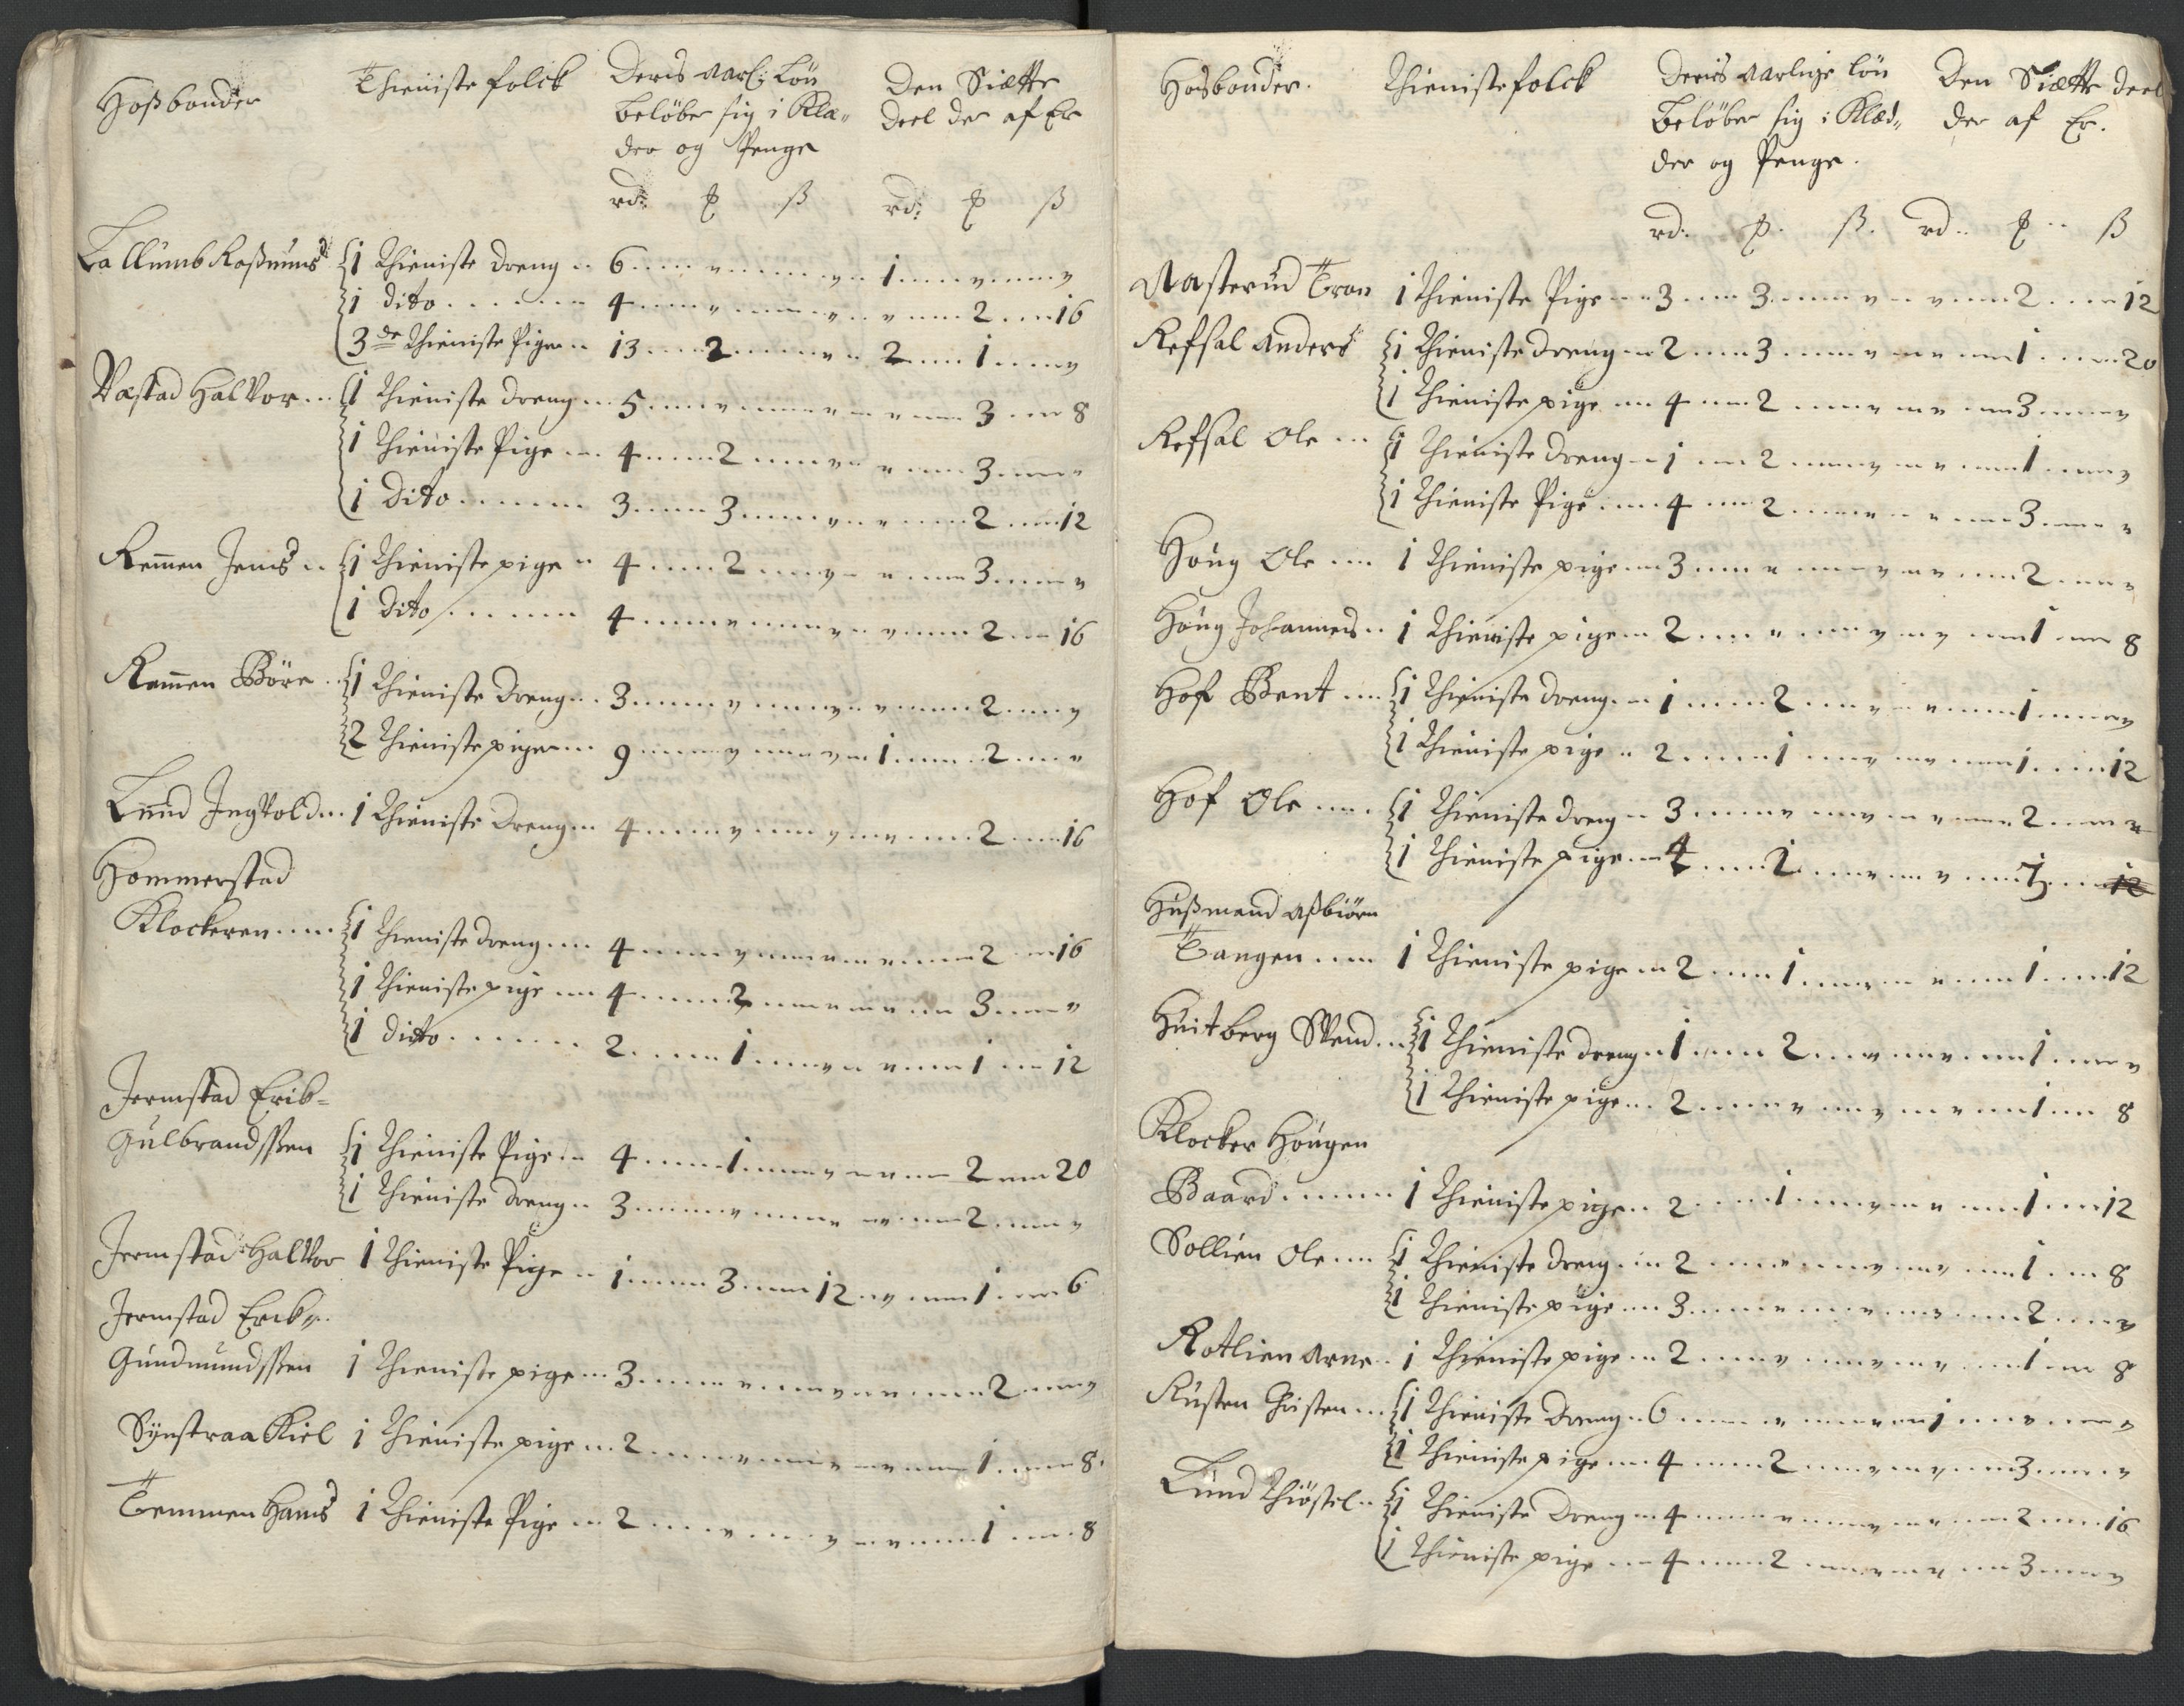 Hosbonder
Thieniste folck
Deris aarl: Lön
beløber sig i Klæ„
der og Penge
Den Siætte
deel der af Er
rd: ꝑ ß rd: ꝑ ß
Lallumb Rasmuns {1 Thieniste dreng .. 6 .... „ .... „ .. 1 .... „ .... „
{1 dito ...... 4 .... „ .... „ .. „ .... 2 .... 16
{3de Thieniste Piger .. 13 .... 2 .... „ .. 2 .... 1 .... „
Væstad Halvor ... {1 Thieniste dreng ... 5 .... „ .... „ .. „ .... 3 ... 8
{1 Thieniste Pige ... 4 .... 2 .... „ .. „ .... 3 .... „
{1 Dito ...... 3 .... 3 .... „ .. „ .... 2 .... 12
Remen Jens .. {1 Thieniste pige .. 4 .... 2 .... „ .. „ .... 3 .... „
{1 Dito ...... 4 .... „ .... „ .. „ .... 2 ... 16
Remen Böre .. {1 Thieniste dreng ... 3 .... „ .... „ .. „ .... 2 .... „
{2 Thieniste piger ... 9 .... „ .... „ .. 1 .... 2 .... „
Lund Ingvold ... 1 Thieniste Dreng ... 4 .... „ .... „ .. „ .... 2 .... 16
Hommerstad
Klockeren ..... {1 Thieniste dreng .... 4 .... „ .... „ .. „ .... 2 ... 16
{1 Thieniste pige ... 4 .... 2 .... „ .. „ ... 3 .... „
{1 ditto ...... 2 .... 1 .... „ .. „ .... 1 ... 12
Jermstad Erik-
Gulbrandssen {1 Thieniste Pige ... 4 .... 1 .... „ .. „ ... 2 .... 20
{1 Thieniste dreng .. 3 .... „ .... „ .. „ .... 2 .... „
Jermstad Halvor 1 Thieniste Pige .. 1 .... 3 .... 12 .. „ .... 1 .... 6
Jermstad Erik„
Gundmundssen 1 Thieniste pige ... 3 .... „ .... „ .. „ .... 2 .... „
Synstraa Kiel 1 Thieniste pige ... 2 .... „ .... „ .. „ .... 1 .... 8
Temmen Hans 1 Thieniste Pige ... 2 .... „ .... „ .. „ .... 1 .... 8
Hosbonder.
Thieniste folck
Deris aarlige lön
beløber sig i Klæd„
der og Penge.
Den Siætte deel
der af Er.
rd. ꝑ. ß. rd.. ꝑ.. ß
Aasterud Tron 1 Thieniste Pige ... 3 .... 3 .... „ .. „ .... 2 .... 12
Refsal Anders {1 Thieniste dreng ... 2 .... 3 .... „ .. „ .... 1 .... 20
{1 Thieniste pige ... 4 ... 2 .... „ .. „ .... 3 .... „
Refsal Ole ... {1 Thieniste dreng .. 1 ... 2 .... „ .. „ .... 1 .... „
{1 Thieniste Pige .... 4 ... 2 .... „ .. „ .... 3 .... „
Houg Ole .... 1 Thieniste pige ... 3 .... „ .... „ .. „ .... 2 .... „
Houg Johannes .. 1 Thieniste pige ... 2 .... „ .... „ .. „ .... 1 ... 8
Hof Bent .... {1 Thieniste dreng ... 1 .... 2 .... „ .. „ .... 1 .... „
{1 Thieniste pige .. 2 .... 1 .... „ .. „ .... 1 .... 12
Hof Ole ..... {1 Thieniste dreng .. 3 .... „ .... „ .. „ .... 2 .... „
{1 Thieniste pige ... 4 .... 2 .... „ .. „ .... 3 .... 12
Husmand Asbiörn
Tangen .... 1 Thieniste pige ... 2 .... 1 .... „ .. „ .... 1 .... 12
Huitberg Svend ... {1 Thieniste dreng .. 1 .... 2 .... „ .. „ .... 1 .... „
{1 Thieniste pige ... 2 .... „ .... „ .. „ .... 1 ... 8
Klocker Hougen
Baard ...... 1 Thieniste pige ... 2 .... 1 .... „ .. „ .... 1 .... 12
Sollien Ole .... {1 Thieniste dreng ... 2 .... „ .... „ .. „ .... 1 ... 8
{1 Thieniste pige ... 3 .... „ .... „ .. „ .... 2 .... „
Rotlien Arne .. 1 Thieniste pige ... 2 .... „ .... „ .. „ .... 1 ... 8
Rusten Christen ... {1 Thieniste Dreng .. 6 .... „ .... „ .. 1 .... „ .... „
{1 Thieniste pige ... 4 .... 2 .... „ .. „ .... 3 .... „
Lund Thiöstel .. {1 Thieniste Dreng ... 4 .... „ .... „ .. „ .... 2 .... 16
{1 Thieniste pige ... 4 .... 2 .... „ .. „ .... 3 .... „